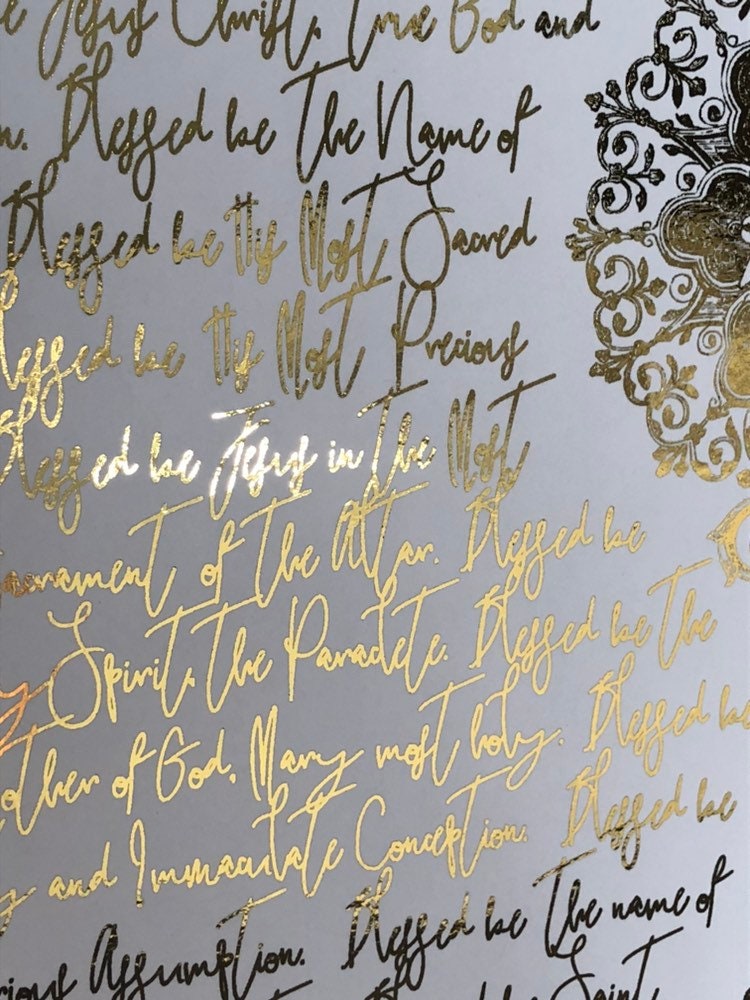 Jesus Christ, True God and
n. Blessed be The Name of
Blessed be His Most Sacred
Blessed be His Most Precious
Blessed be Jesus in The Most
Sacrament of The Altar. Blessed be
Spirit, The Paraclete. Blessed be The
other of God, Mary most holy. Blessed be
y and Immaculate Conception. Blessed be
rious Assumption. Blessed be The name of
Saint